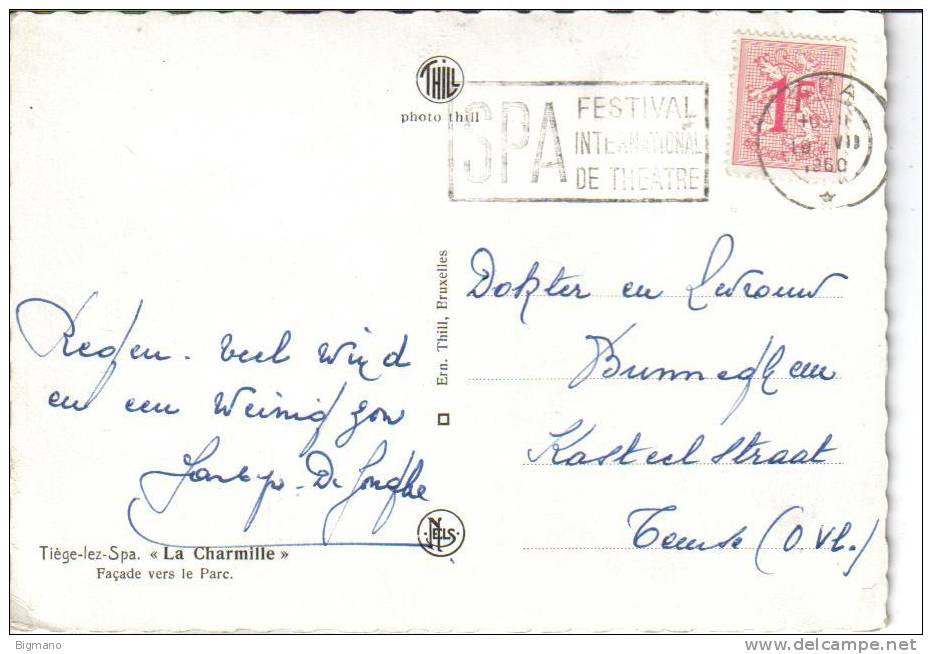 THILL
photo thill
SPA
FESTIVAL
INTERNATIONAL
DE THEATRE
1F
SPA
1960
Ern. Thill, Bruxelles
NELS
Dokter en Mevrouw
Bunneghem
Kasteelstraat
Temse (O. Vl.)
Regen - veel wind
en een weinig zon
De Jonghe
Tiège-lez-Spa. « La Charmille »
Façade vers le Parc.
Bigmano
www.delcampe.net